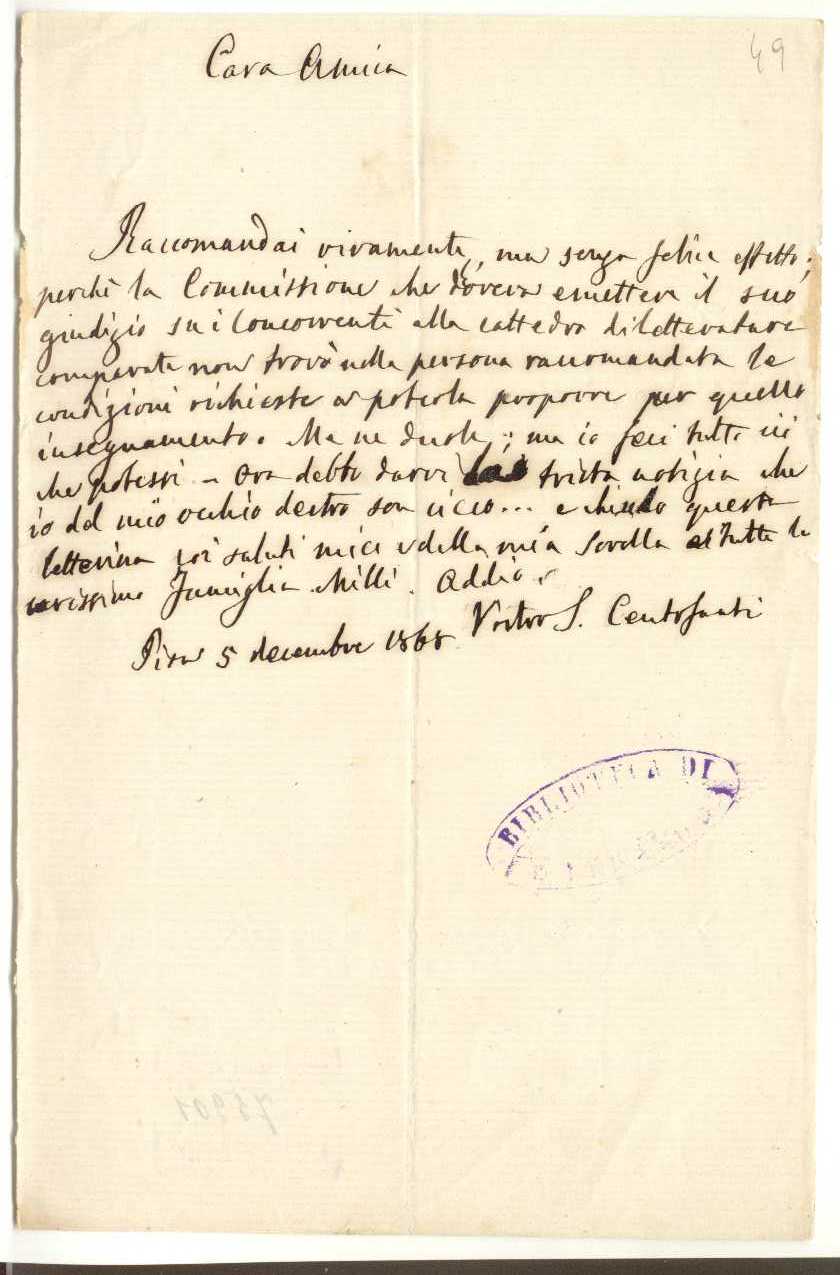 49
Cara Amica
Raccomandai vivamente, ma senza felice effetto;
perchè la Commissione che doveva emettere il suo
giudizio su i Concorrenti alla cattedra di letterature
comparate non trovò nella persona raccomandata le
condizioni richieste a poterla proporre per quello
insegnamento. Me ne duole; ma io feci tutto ciò
che potessi - Ora debbo darvi la trista notizia che
io del mio occhio destro son cieco... e chiudo questa
letterina coi saluti miei e della mia Sorella a tutta la
carissima Famiglia Milli. Addio.
Vostro S. Centofanti
Pisa 5 decembre 1868
BIBLIOTECA DI